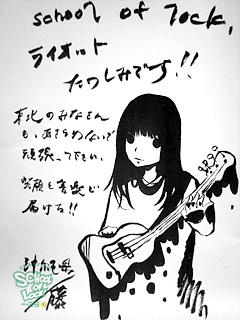 school of lock,
ライオット
たつしみです!!
東北のみなさん
も、あきらめないで
頑張って下さい。
笑顔を音楽で
届ける!!
SCHOOL
OF
LOCK!